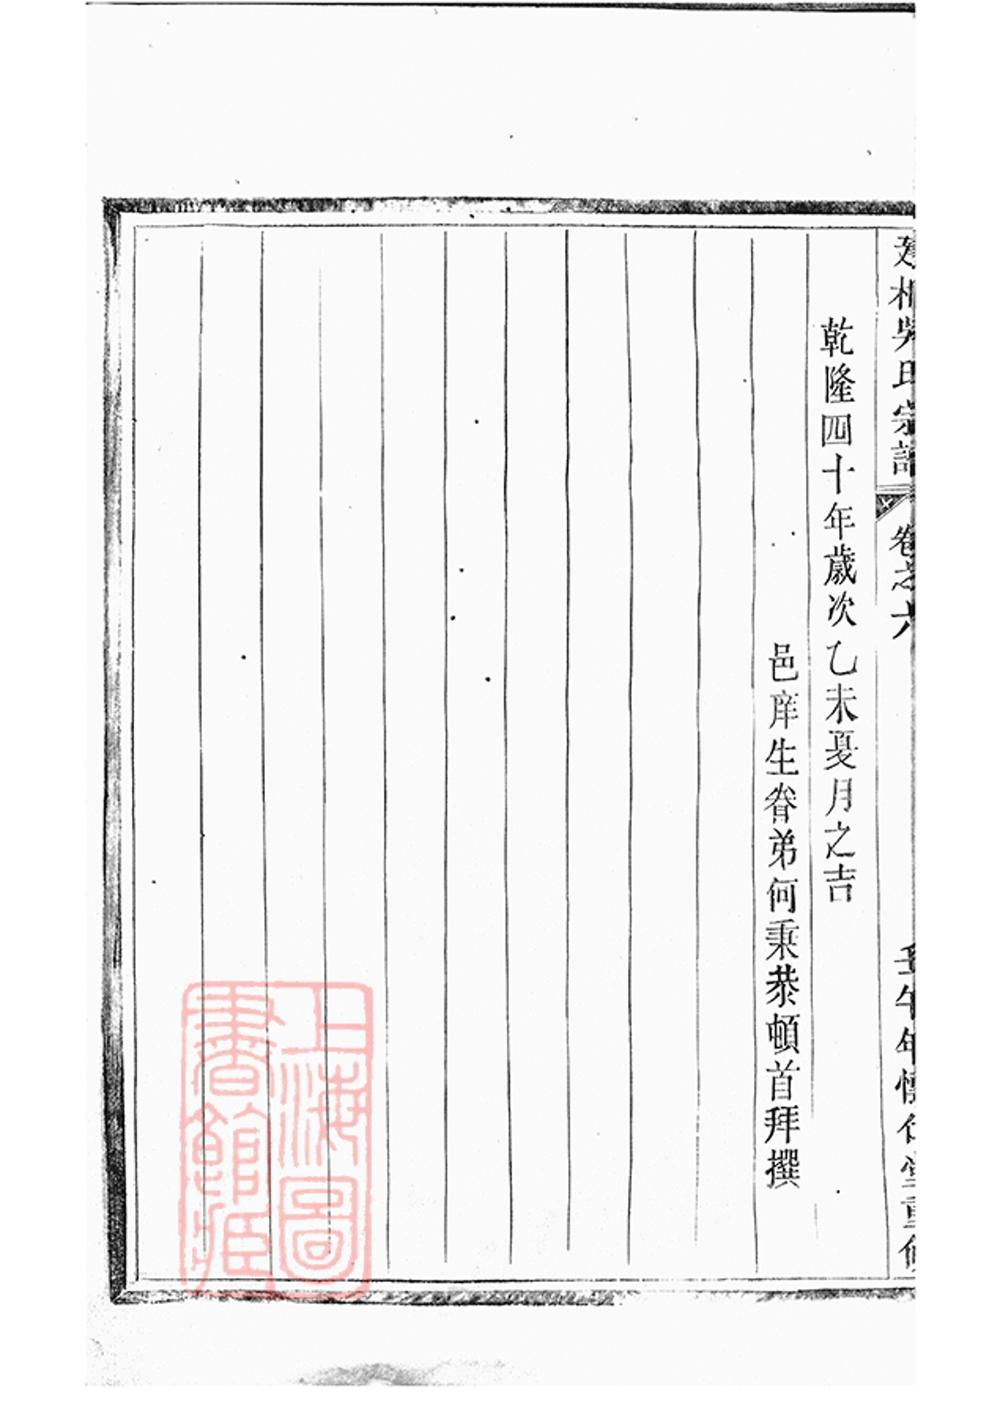 吳氏宗譜
卷之六
壬午年懷仁堂重修
乾隆四十年歲次乙未夏月之吉
邑庠生眷弟何秉恭頓首拜撰
上海圖
書館藏